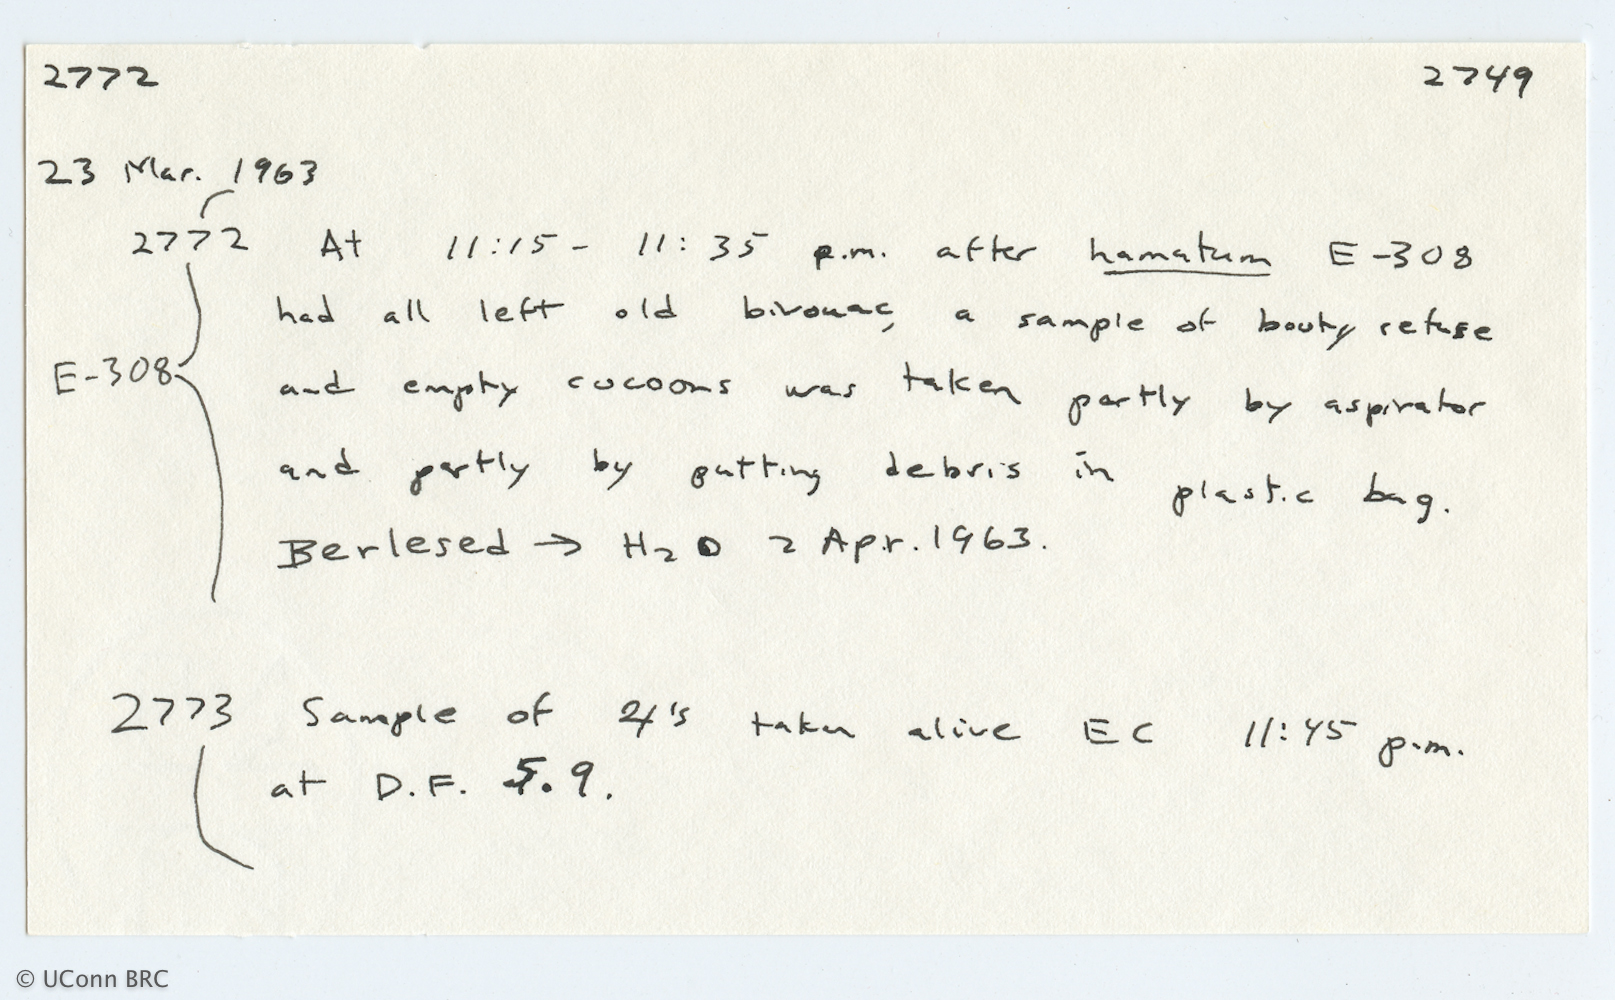 2772 2749
23 Mar. 1963
2772 At 11:15 - 11:35 p.m. after hamatum E-308
had all left old bivouac, a sample of booty refuse
E-308 and empty cocoons was taken partly by aspirator
and partly by putting debris in plastic bag.
Berlesed → H2O 2 Apr. 1963.
2773 Sample of ♃'s taken alive EC 11:45 p.m.
at D.F. 5.9.
© UConn BRC